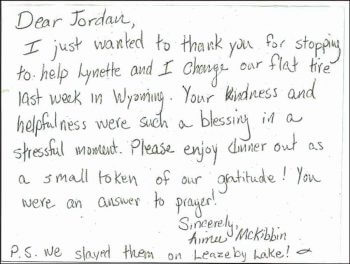 Dear Jordan,
I just wanted to thank you for stopping
to help Lynette and I change our flat tire
last week in Wyoming. Your kindness and
helpfulness were such a blessing in a
stressful moment. Please enjoy dinner out as
a small token of our gratitude! You
were an answer to prayer!
Sincerely,
Aimee McKibbin
P.S. we slayed them on Leazeby Lake!